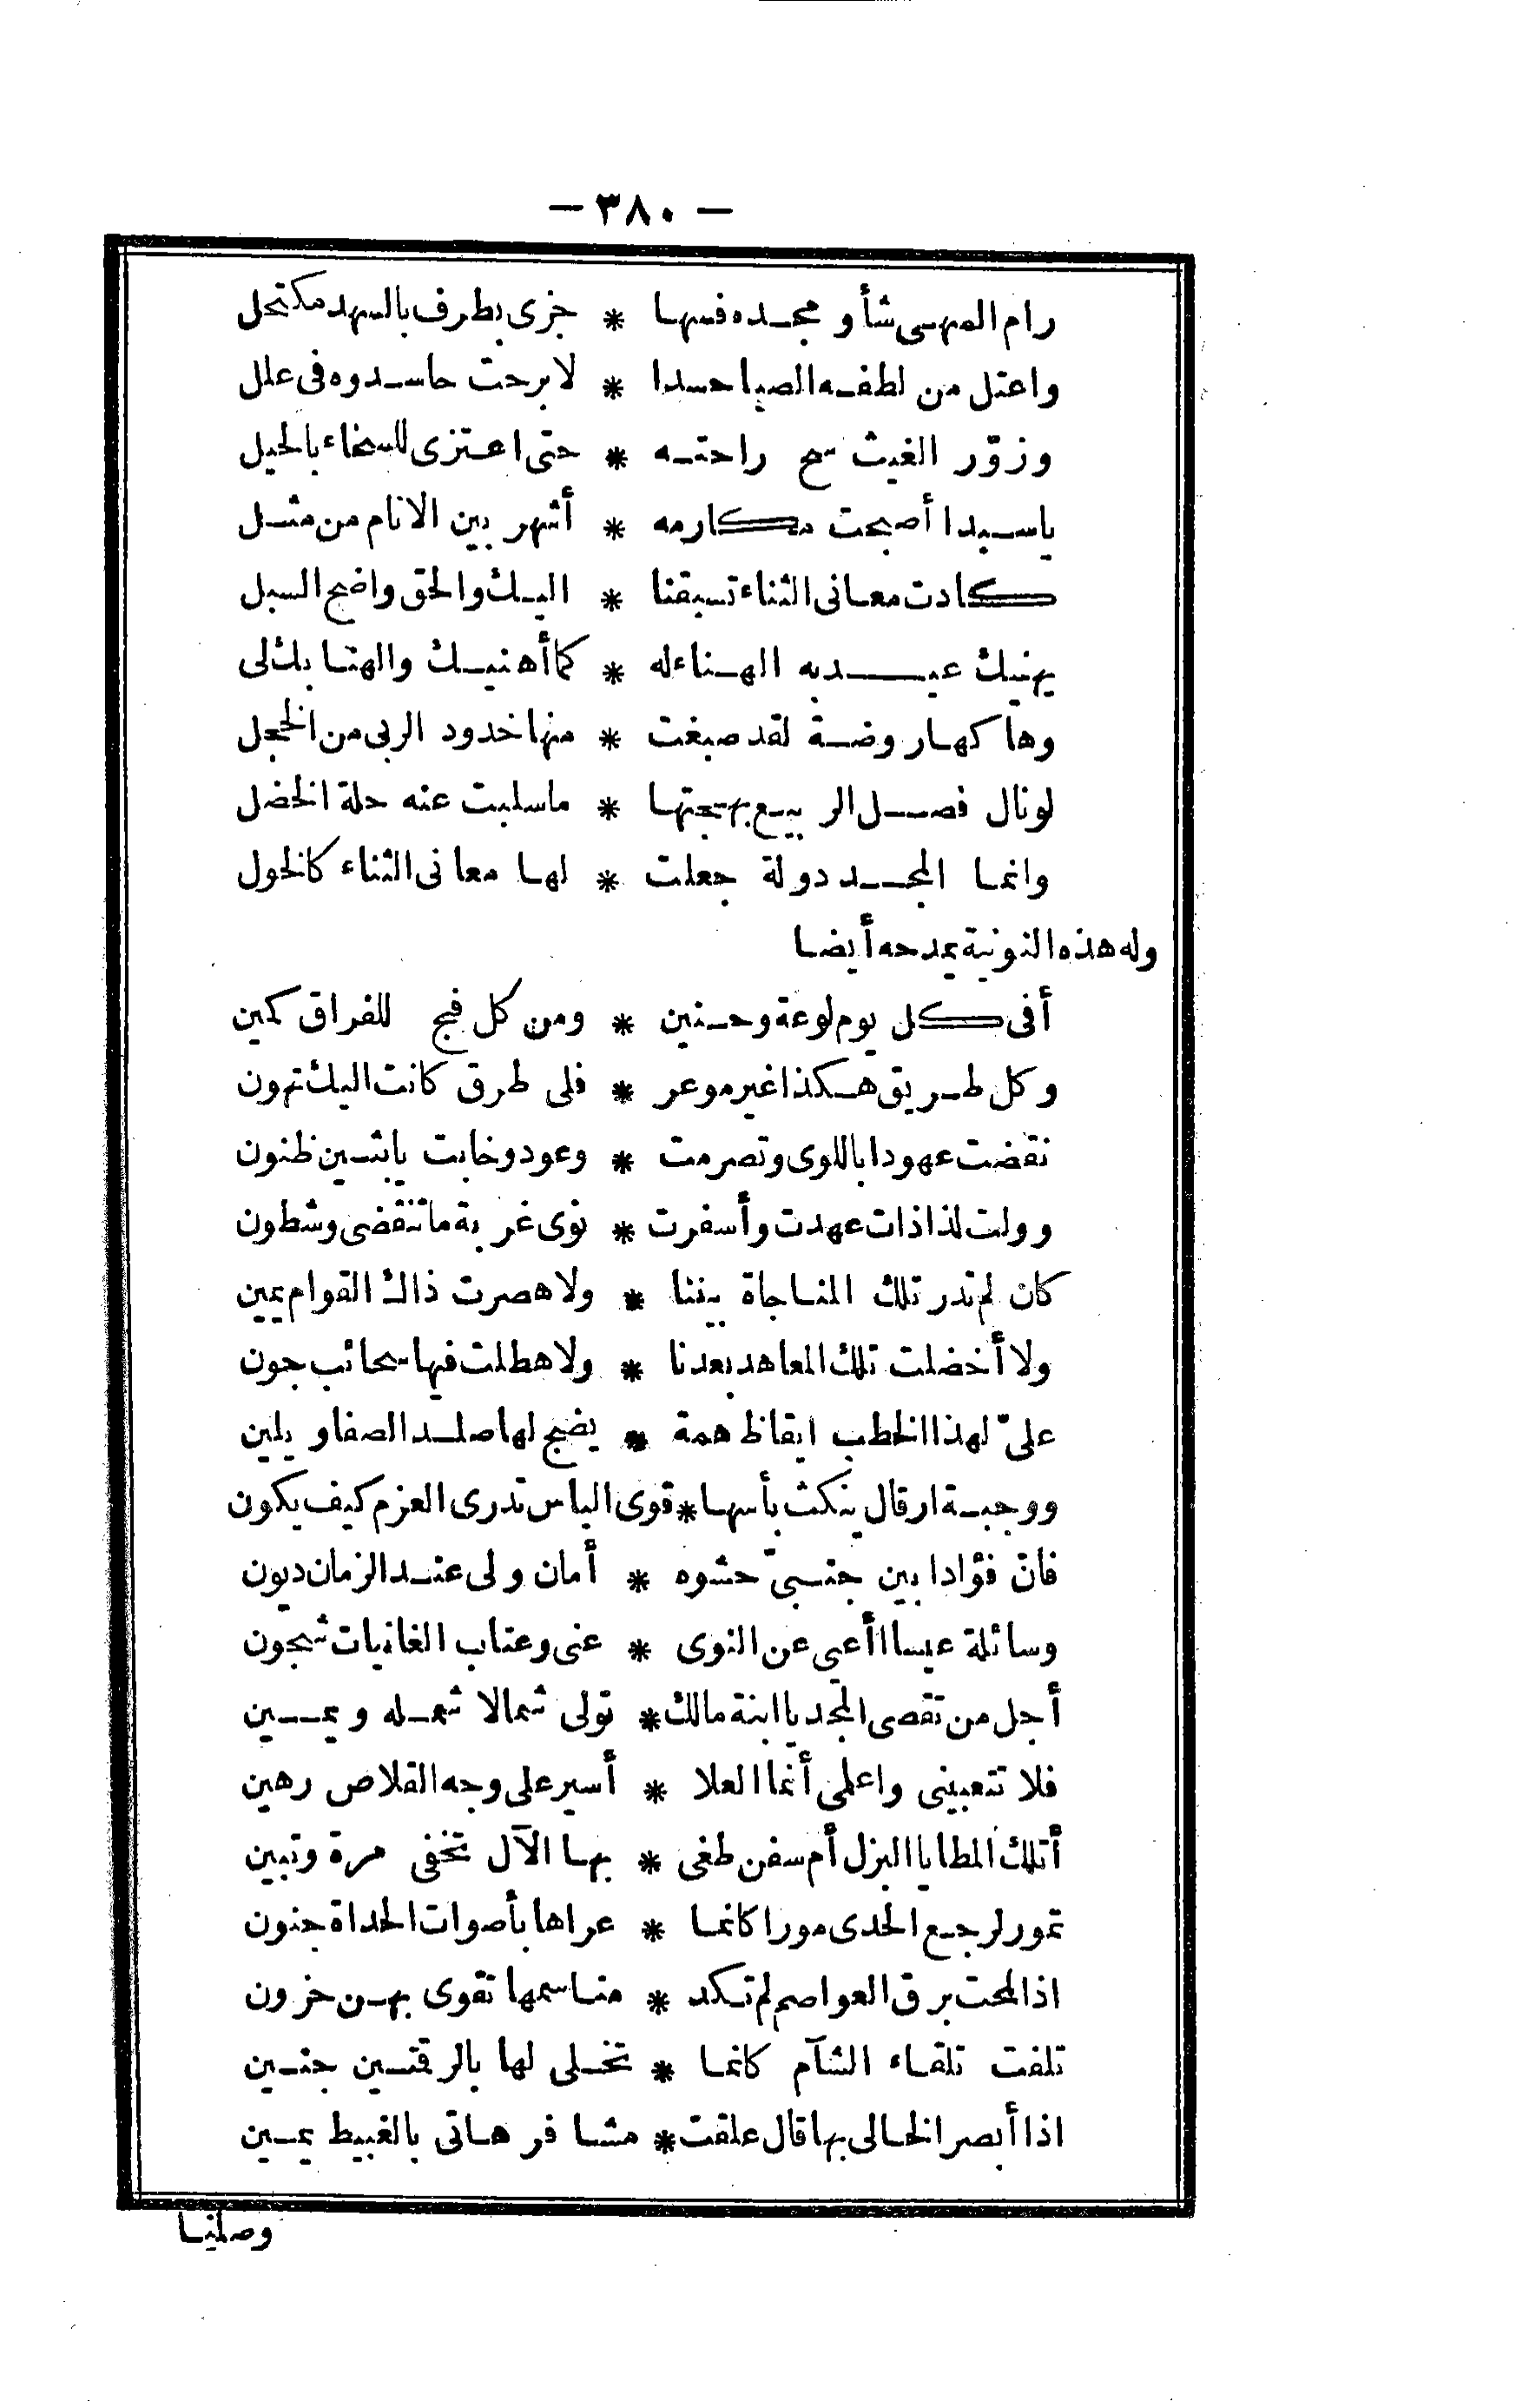 — ٣٨٠ —
رام السهى شأو مجده فسها * جزى بطرف بالسهد مكتحل
واعتل من لطفه الصبا حسدا * لا برحت حاسدوه فى علل
وزوّر الغيث سح راحته * حتى اعتزى للسخاء بالحيل
ياسيدا أصبحت مكارمه * أشهر بين الانام من مثل
كادت معانى الثناء تسبقنا * اليك والحق واضح السبل
يهنيك عيد به الهناء له * كما أهنيك والهنا بك لى
وهاكها روضة لقد صبغت * منها خدود الربى من الخجل
لونال فصل الربيع بهجتها * ماسلبت عنه حلة الخضل
وانما المجد دولة جعلت * لها معانى الثناء كالخول
وله هذه النونية يمدحه أيضا
أفى كل يوم لوعة وحنين * ومن كل فج للفراق كمين
وكل طريق هكذا غير موعر * فلى طرق كانت اليك تهون
نقضت عهودا باللوى وتصرمت * وعود وخابت يابثين ظنون
وولت لذاذات عهدت وأسفرت * نوى غربة ماتنقضى وشطون
كان لم تدر تلك المناجاة بيننا * ولا هصرت ذاك القوام يمين
ولا أخضلت تلك المعاهد بعدنا * ولا هطلت فيها سحائب جون
علىّ لهذا الخطب ايقاظ همة * يضج لها صلد الصفا ويلين
ووجبة ارقال ينكث بأسها * قوى الياس تدرى العزم كيف يكون
فانّ فؤادا بين جنبىّ حشوه * أمان ولى عند الزمان ديون
وسائلة عيسا أأعيى عن النوى * عنى وعتاب الغانيات شجون
أجل من تقصى المجد يا ابنة مالك * تولى شمالا شمله ويمين
فلا تتعبينى واعلمى أنما العلا * أسير على وجه القلاص رهين
أتلك المطايا البزل أم سفن طغى * بها الآل تخفى مرة وتبين
تمور لرجع الحدى مورا كانما * عراها بأصوات الحداة جنون
اذا لمحت برق العواصم لم تكد * مناسمها تقوى بهن حزون
تلفت تلقاء الشآم كانما * تخلى لها بالرقتين جنين
اذا أبصر الخالى بها قال علقت * مشافر هاتى بالغبيط يمين
وصلنا